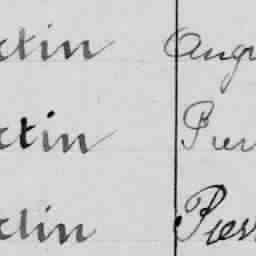 ctin Augu
ctin Pierr
ctin Pierr